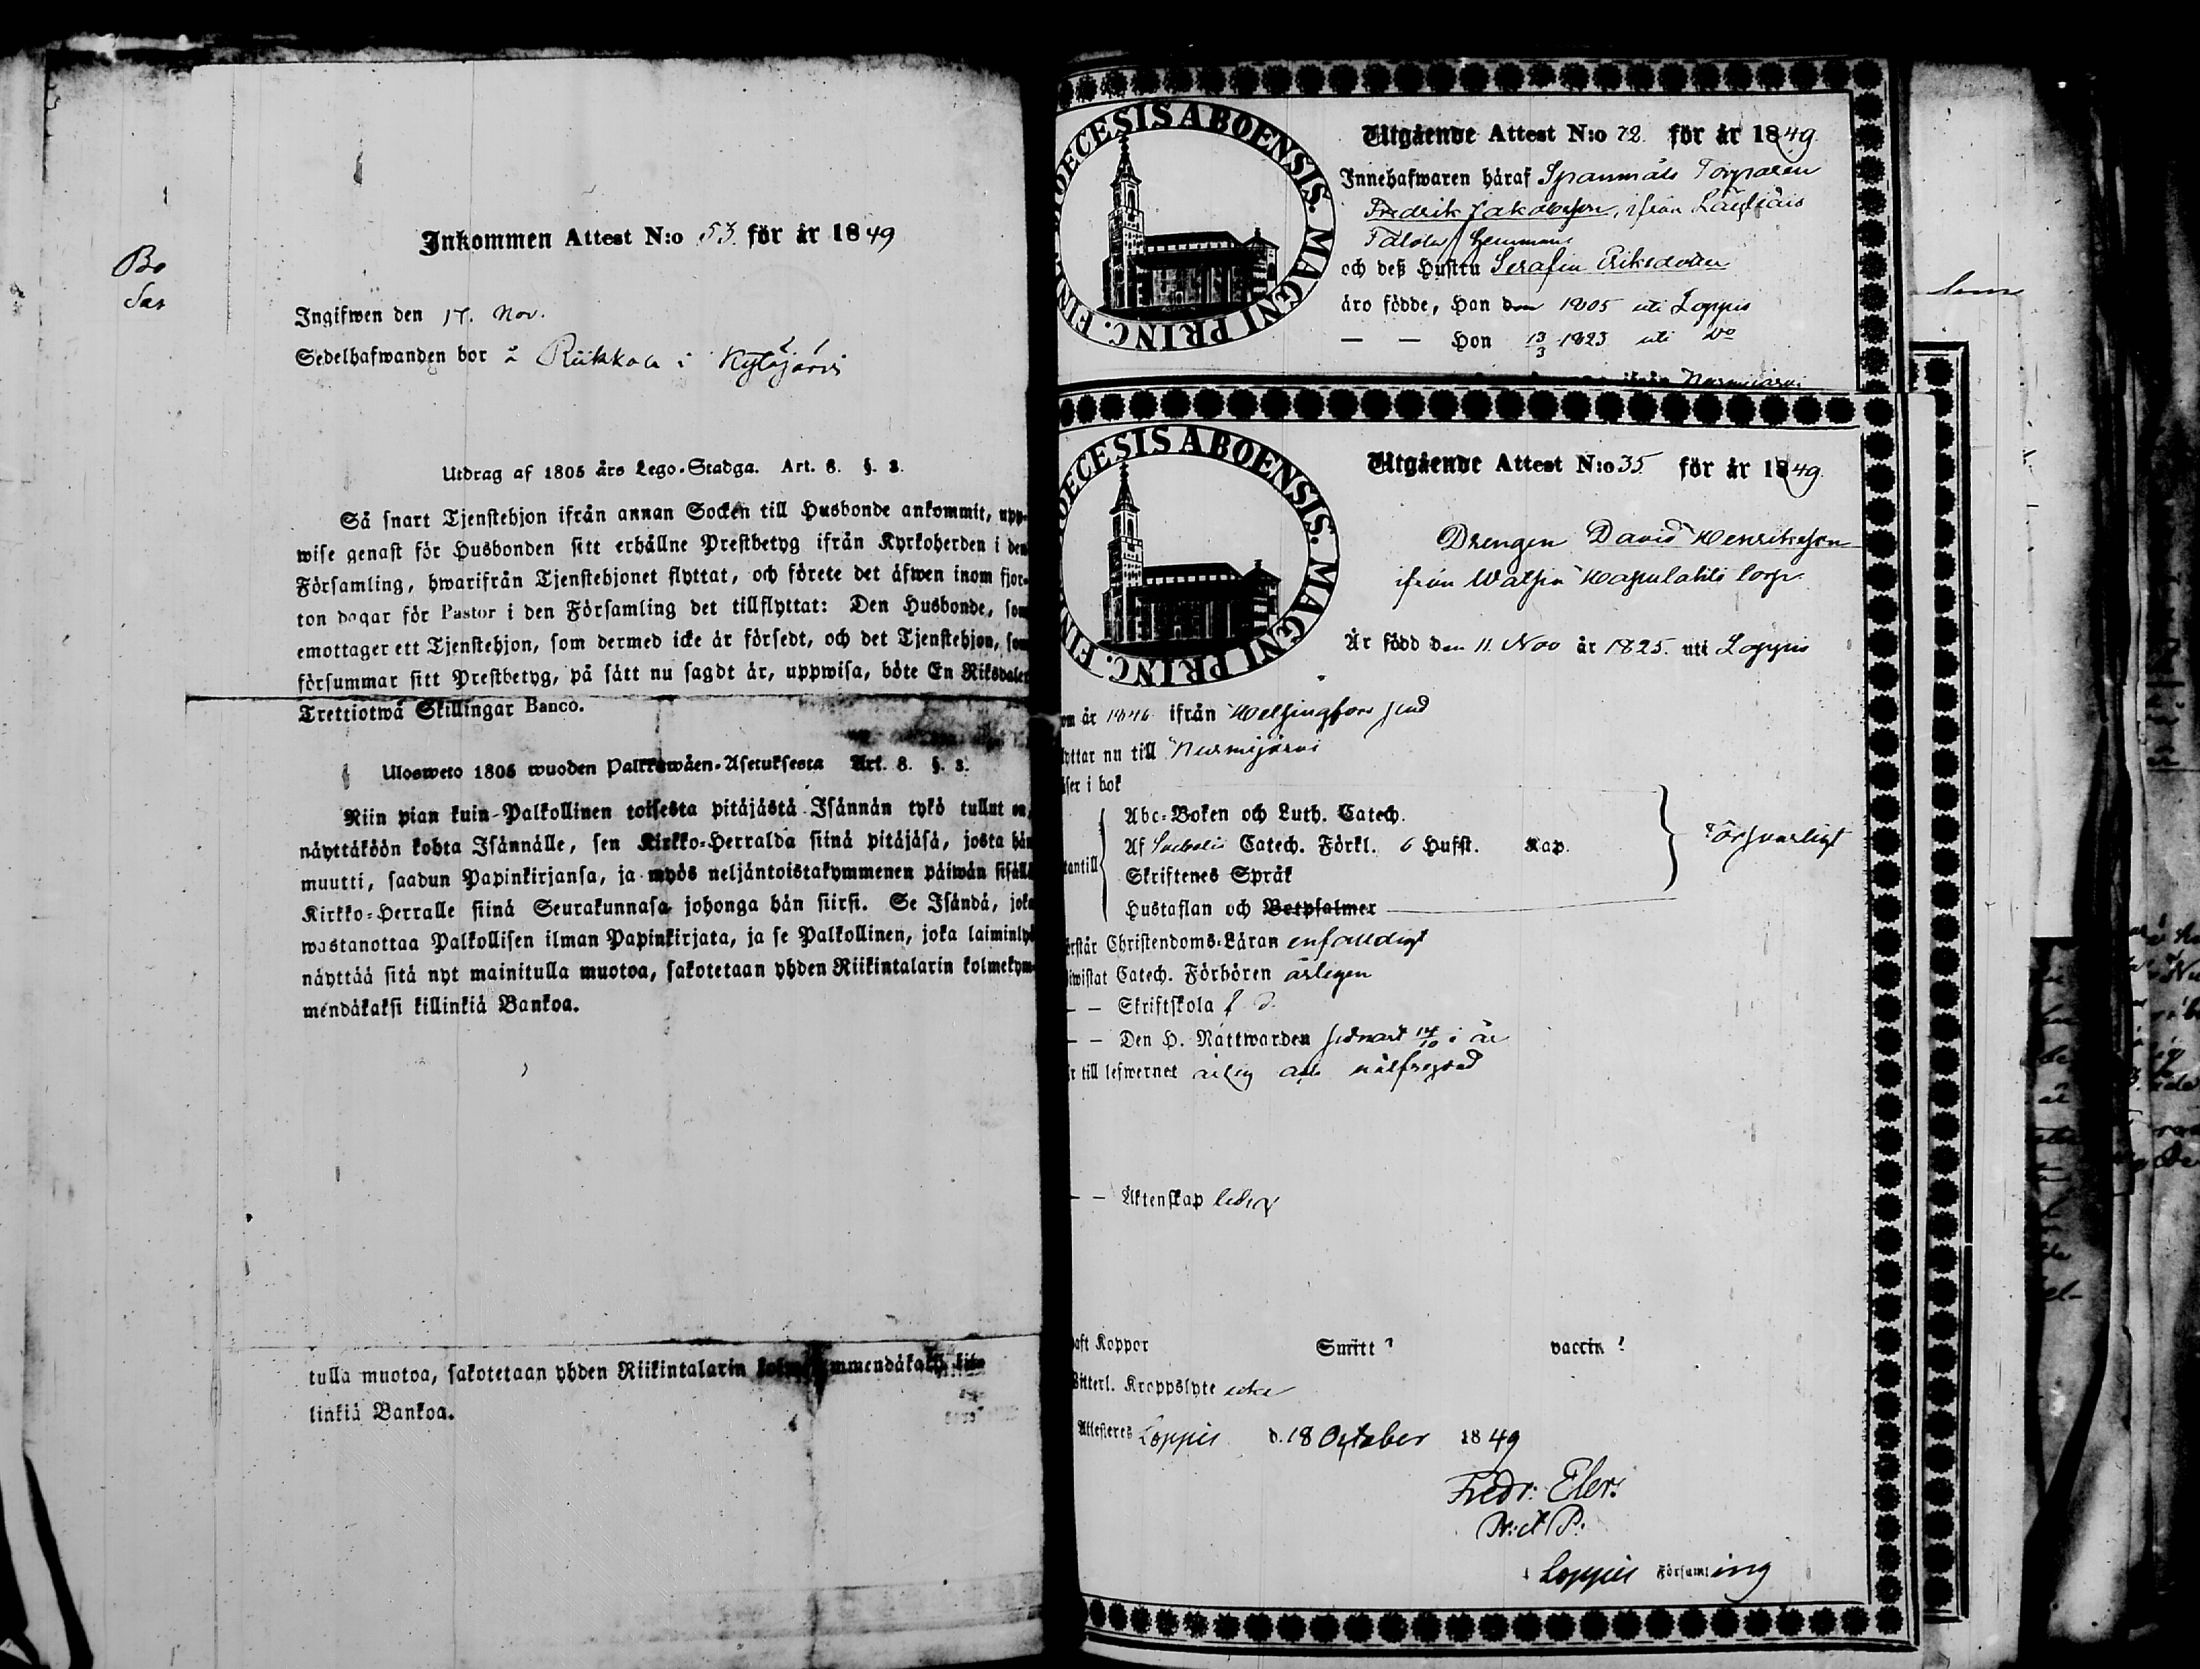 Bo
Sas
Inkommen Attest N:o 53. för år 1849
Ingifwen den 17. Nov.
Sedelhafwanden bor å Riikkola i Kytäjärvi
Utdrag af 1805 års Lego-Stadga. Art. 8. §. 3.
Så snart Tjenstehjon ifrån annan Socken till Husbonde ankommit, upp-
wise genast för Husbonden sitt erhållne Prestbetyg ifrån Kyrkoherden i den
Församling, hwarifrån Tjenstehjonet flyttat, och förete det äfwen inom fjor-
ton dagar för Pastor i den Församling det tillflyttat: Den Husbonde, som
emottager ett Tjenstehjon, som dermed icke är försedt, och det Tjenstehjon, som
försummar sitt Prestbetyg, på sätt nu sagdt är, uppwisa, böte En Riksdaler
Trettiotwå Skillingar Banco.
Ulosweto 1805 wuoden Palkkawäen-Asetuksesta Art. 8. §. 3.
Niin pian kuin Palkollinen toisesta pitäjästä Isännän tykö tullut on,
näyttäköön kohta Isännälle, sen Kirkko-Herralda siinä pitäjäsä, josta hän
muutti, saadun Papinkirjansa, ja myös neljäntoistakymmenen päiwän sisällä
Kirkko-Herralle siinä Seurakunnasa johonga hän siirsi. Se Isändä, joka
wastanottaa Palkollisen ilman Papinkirjata, ja se Palkollinen, joka laiminlyö
näyttää sitä nyt mainitulla muotoa, sakotetaan yhden Riikintalarin kolmekym-
mendäkaksi killinkiä Bankoa.
tulla muotoa, sakotetaan yhden Riikintalarin kolmekymmendäkaksi kil-
linkiä Bankoa.
DIOECESIS ABOENSIS. MAGNI PRINC. FIN
Utgående Attest N:o 72. för år 1849.
Innehafwaren häraf Spanmåls Torparen
Fredrik Jakobsson, ifrån Läyliäis
Talola Hemmans
och deß Hustru Serafia Eriksdotter
äro födde, Han den 1805 uti Loppis
— — Hon 13/3 1823 uti Do
ifrån Nurmijärvi
DIOECESIS ABOENSIS. MAGNI PRINC. FIN
Utgående Attest N:o 35. för år 1849.
Drengen David Henriksson
ifrån Watsia Hapulahti torp.
Är född den 11. Nov år 1825. uti Loppis
om år 1846 ifrån Helsingfors stad
lyttar nu till Nurmijärvi
äser i bok
Abc-Boken och Luth. Catech.
Af Svebelii Catech. Förkl. 6 Hufst. Kap.
Skriftenes Språk
Hustaflan och Botpsalmer
utantill
försvarligt
örstår Christendoms-Läran enfalldigt
iwistat Catech. Förhören årligen
— — Skriftskola
— — Den H. Nattwarden sednast 14/10 i år
r till lefwernet ärlig och wälfrejdad
— — Äktenskap ledig
aft Koppor Smitt ? vaccin ?
itterl. Kroppslyte icke
Attesteres Loppis d. 18 October 1849
Fredr: Elers
V. P.
i Loppis Församling